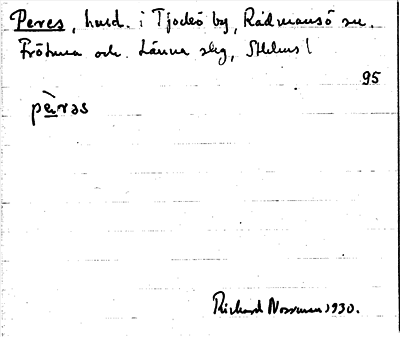 Peres, hmd. i Tjockö by, Rådmansö sn.
Frötuna och Länna slg, Sthlms l
95
pè̱ras
Richard Norrman 1930.